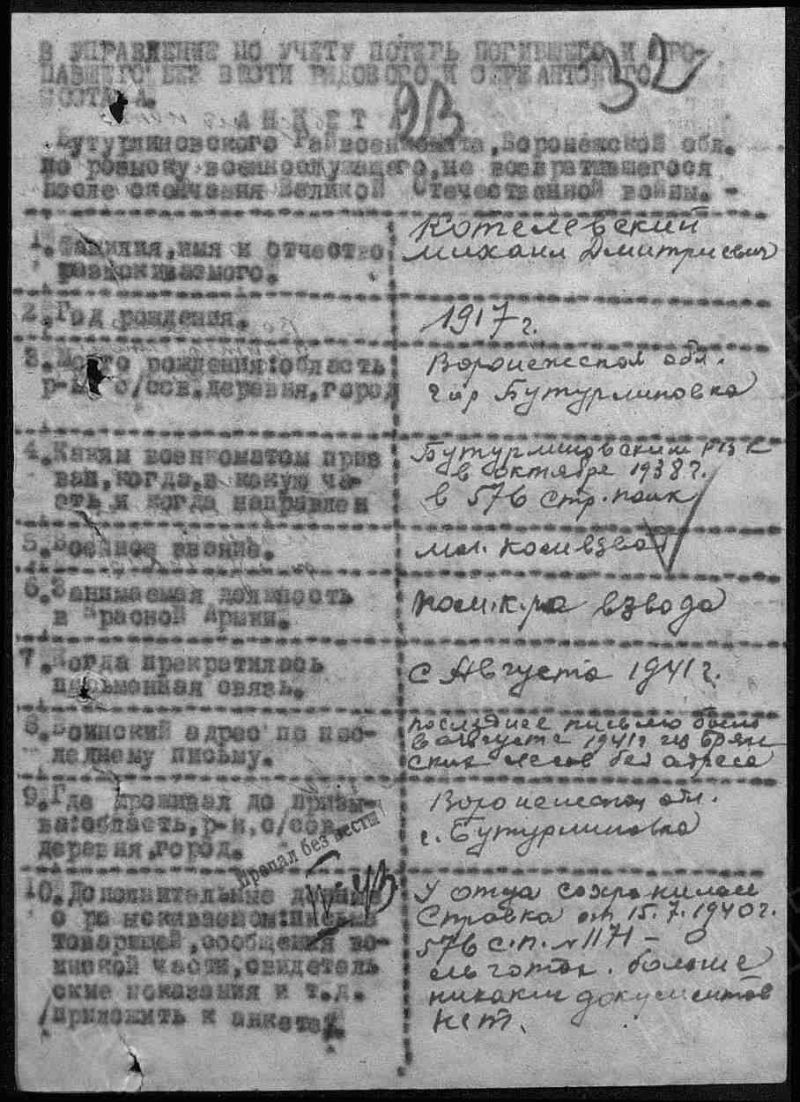 В УПРАВЛЕНИЕ ПО УЧЕТУ ПОТЕРЬ ПОГИБШЕГО И ПРО-
ПАВШЕГО БЕЗ ВЕСТИ РЯДОВОГО И СЕРЖАНТСКОГО
СОСТАВА.
32
АНКЕТА
Бутурлиновского Райвоенкомата, Воронежской обл.
по розыску военнослужащего, не возвратившегося
после окончания Великой Отечественной войны. -
1. Фамилия, имя и отчество
разыскиваемого.
Котелевский
Михаил Дмитриевич
2. Год рождения.
1917 г.
3. Место рождения: область
р-н, с/сов, деревня, город
Воронежской обл.
гор Бутурлиновка
4. Каким военкоматом приз
ван, когда, в какую ча-
сть и когда направлен
Бутурлиновским РВК
в октябре 1938 г.
в 576 стр. полк
5. Военное звание.
мл. комвзвод
6. Занимаемая должность
в Красной Армии.
пом. к-ра взвода
7. Когда прекратилась
письменная связь.
с Августа 1941 г.
8. Воинский адрес по пос-
леднему письму.
последнее письмо было
в августе 1941 г из Брян
ских лесов без адреса
9. Где проживал до призы-
ва: область, р-н, с/сов
деревня, город.
Воронежской обл.
г. Бутурлиновка
Пропал без вести
10. Дополнительные данные
о разыскиваемом: письма
товарищей, сообщения во-
инской части, свидетель
ские показания и т.д.
приложить к анкете.
У отца сохранилась
Справка от 15.7.1940 г.
576 с.п. № 1171 - о
льготах. больше
никаких документов
нет.